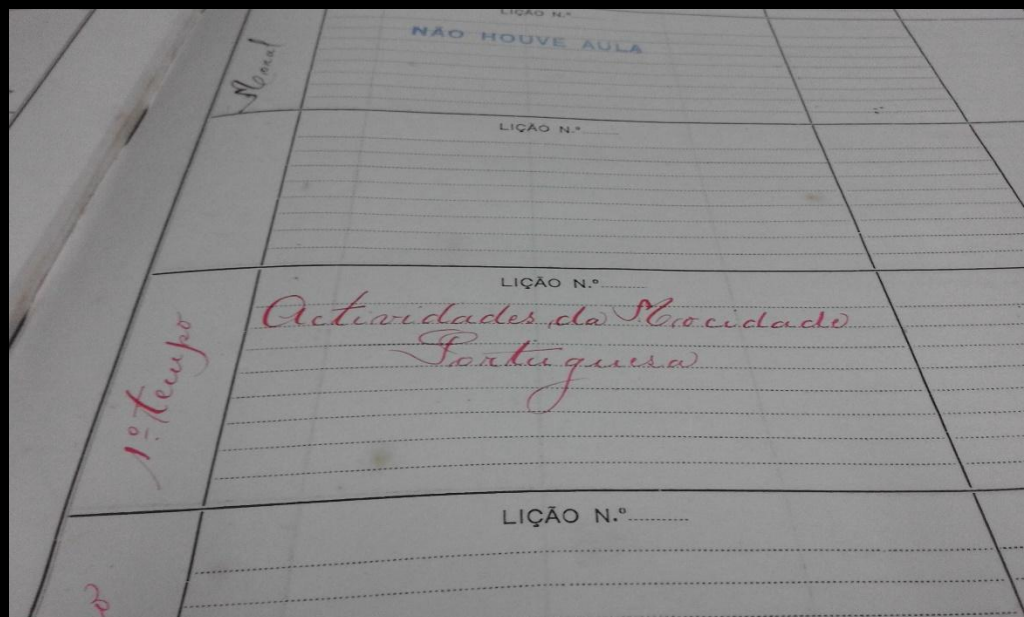 LIÇÃO N.º
NÃO HOUVE AULA
Moral
LIÇÃO N.º
LIÇÃO N.º
Actividades da Mocidade
Portuguesa
1º tempo
LIÇÃO N.º